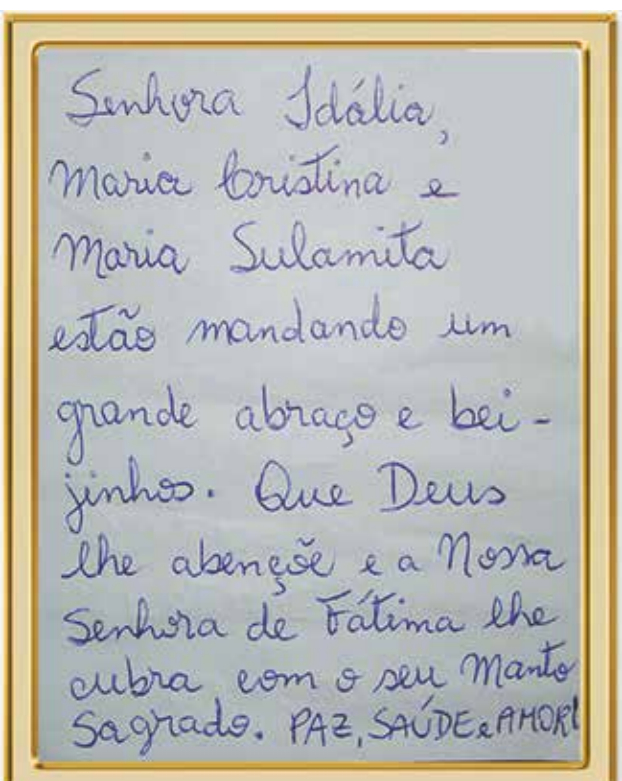 Senhora Idália,
Maria Cristina e
Maria Sulamita
estão mandando um
grande abraço e bei-
jinhos. Que Deus
lhe abençõe e a Nossa
Senhora de Fátima lhe
cubra com o seu Manto
Sagrado. PAZ, SAÚDE e AMOR!